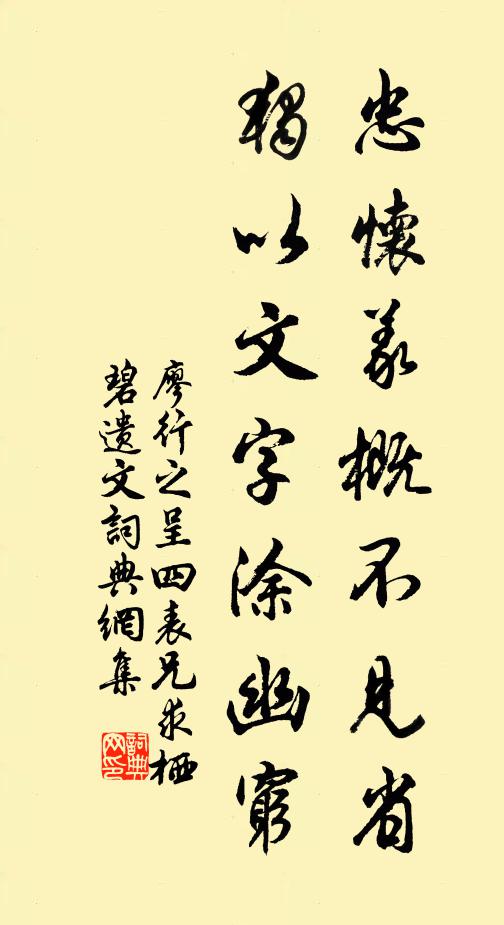 忠懷義概不見省
獨以文字涂幽窮
廖行之呈四表兄求栖
碧遗文詞典網集
詞典网印